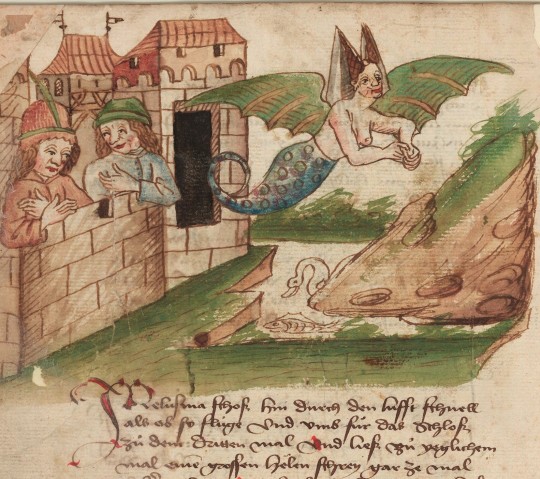 Melusina schoſʒ hin durch den lufft ſchnell
als ob ſy fluge Vnd vmb für das Schloſʒ
zů dem dritten mal Vnd lieſʒ zů yeglichem
mal eine groſſen hellen ſchrey gar ze mal